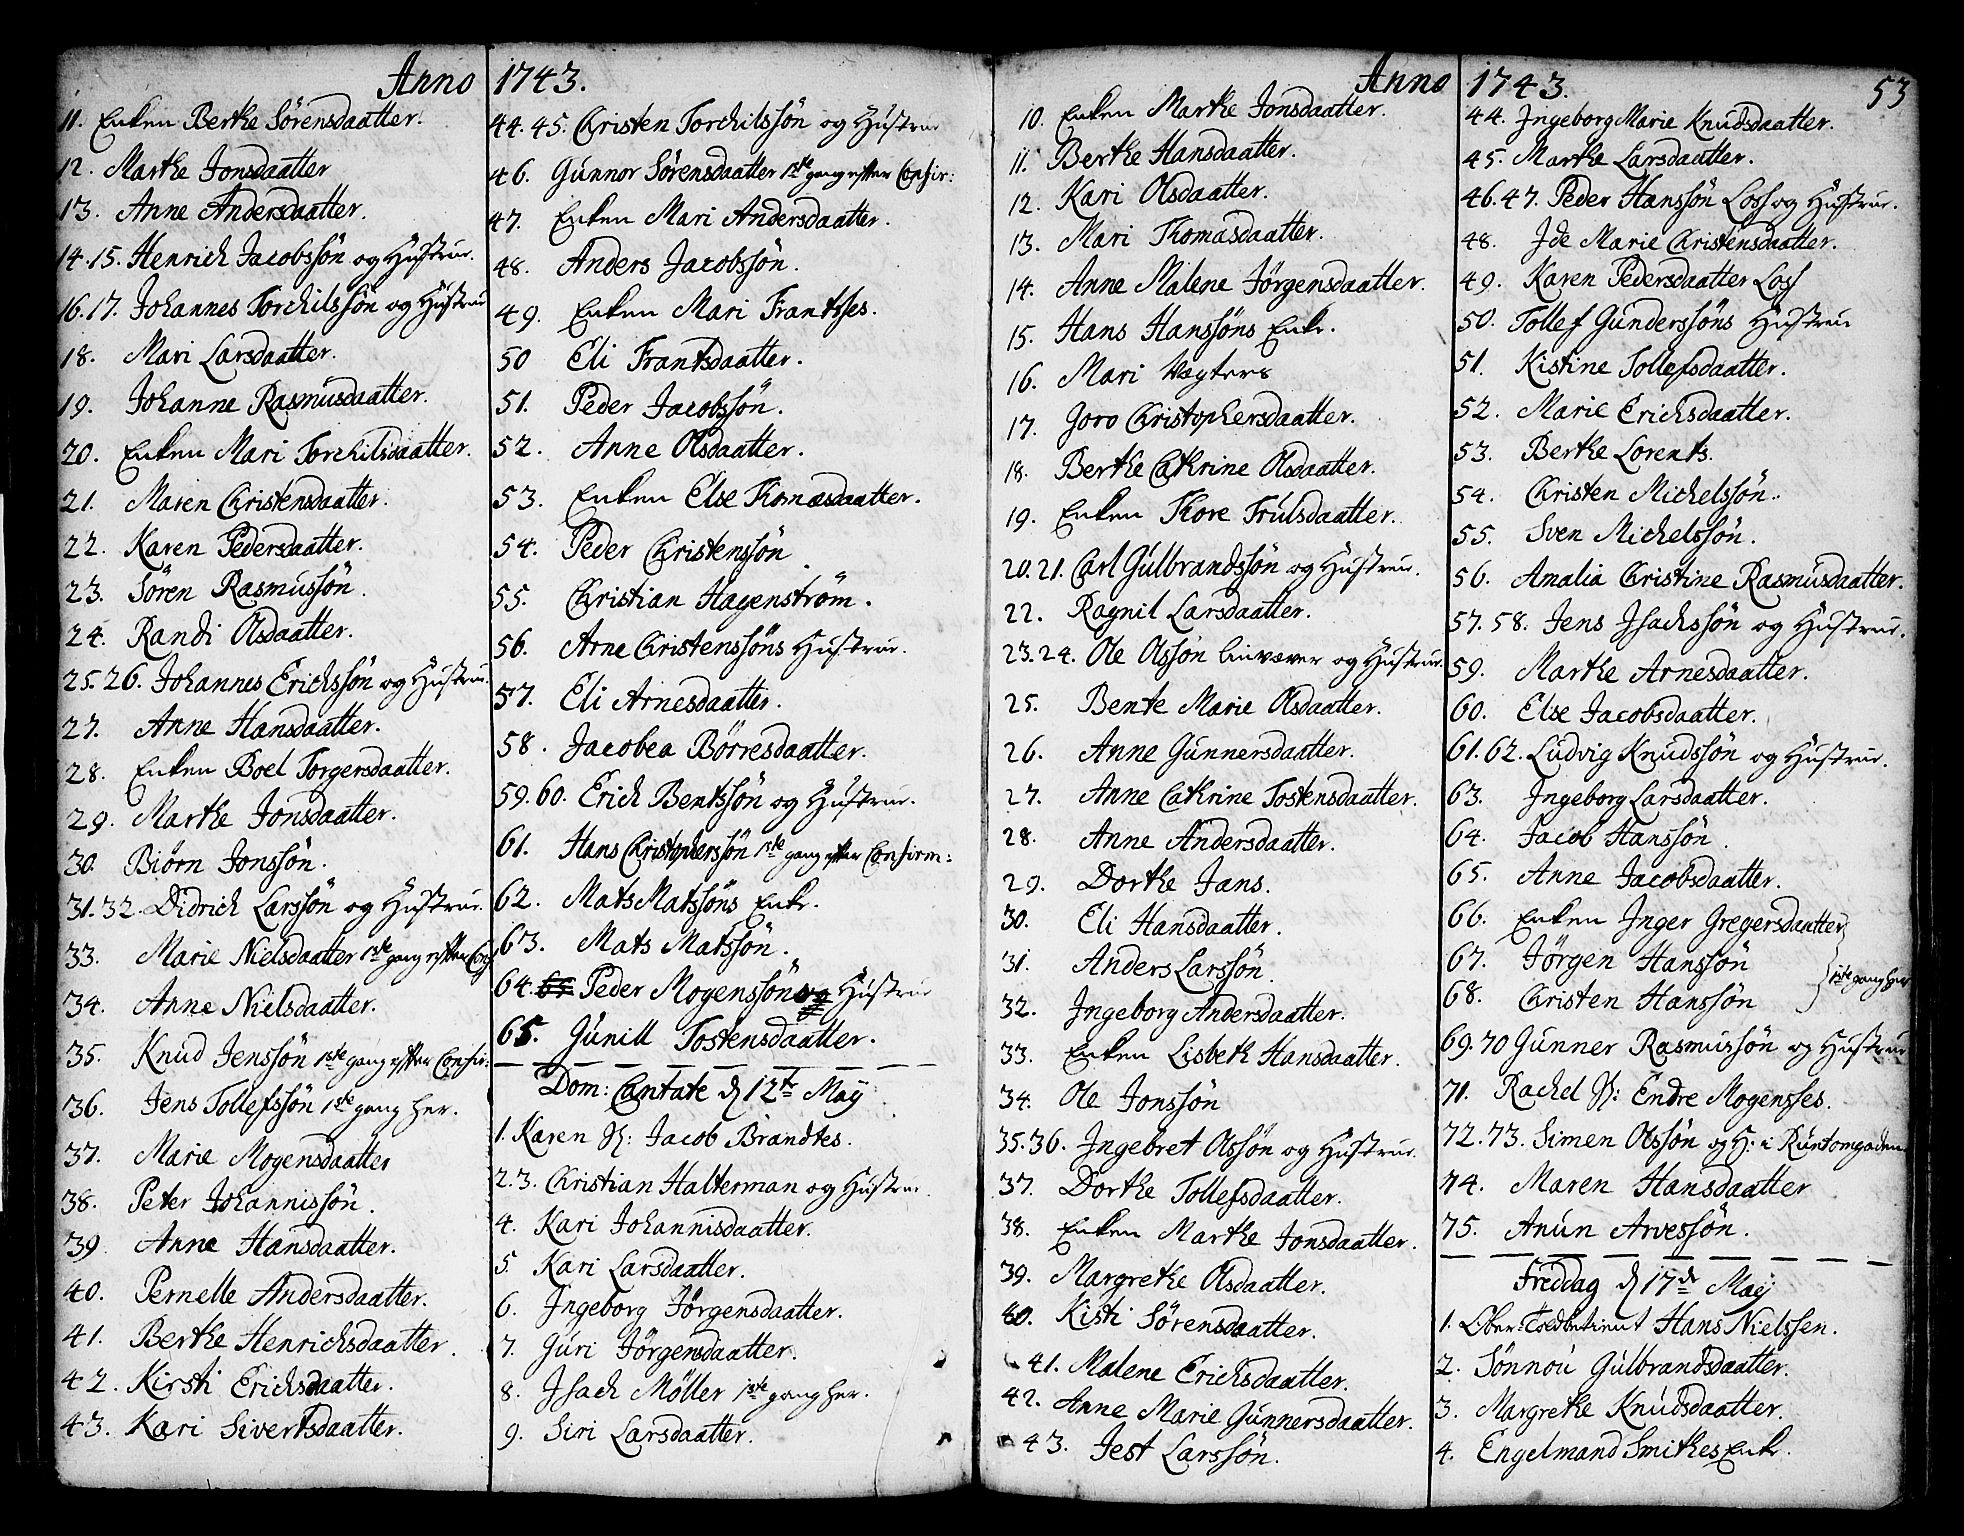 Anno 1743.
11. Enken Berthe Sörensdaatter.
12. Marthe Jonsdaatter
13. Anne Andersdaatter.
14.15. Henrich Jacobssön og Hustrue.
16.17. Johannes Torchilssön og Hustrue
18. Mari Larsdaatter.
19. Johanne Rasmusdaatter.
20. Enken Mari Torchilsdaatter.
21. Maren Christensdaatter.
22. Karen Pedersdaatter.
23. Sören Rasmussön.
24. Randi Olsdaatter.
25.26. Johannes Erichssön og Hustrue.
27. Anne Hansdaatter.
28. Enken Boel Torgersdaatter.
29. Marthe Jonsdaatter.
30. Biörn Jonssön.
31.32. Didrich Larssön og Hustrue.
33. Marie Nielsdaatter 1ste gang efter Conf
34. Anne Nielsdaatter.
35. Knud Jenssön 1ste gang efter Confir:
36. Jens Tollefssön 1ste gang her.
37. Marie Mogensdaatter
38. Peter Johannissön.
39 Anne Hansdaatter.
40. Pernelle Andersdaatter.
41. Berthe Henrichsdaatter.
42. Kirsti Erichsdaatter.
43. Kari Sivertsdaatter.
44.45. Christen Torchilssön og Hustrue
46. Gunnor Sörensdaatter 1ste gang efter Confir:
47. Enken Mari Andersdaatter.
48. Anders Jacobssön.
49. Enken Mari Frantses.
50 Eli Frantsdaatter.
51. Peder Jacobssön.
52. Anne Olsdaatter.
53. Enken Else Thomasdaatter.
54. Peder Christenssön.
55. Christian Hagenström.
56. Arne Christenssöns Hustrue.
57. Eli Arnesdaatter.
58. Jacobea Börresdaatter.
59.60. Erich Bentssön og Hustrue.
61. Hans Christophersön 1ste gang efter Confirm:
62. Mats Matssöns Enke.
63. Mats Matssön.
64. 65 Peder Mogenssöns og Hustrue
65. Gunill Tostensdaatter.
Dom: Cantate d 12te Maÿ
1. Karen Sl: Jacob Brandtes.
2.3. Christian Halterman og Hustrue.
4. Kari Johannisdaatter.
5. Kari Larsdaatter.
6. Ingeborg Jörgensdaatter.
7. Guri Jörgensdaatter.
8. Isach Möller 1ste gang her.
9. Siri Larsdaatter.
Anno 1743. 53
10. Enken Marthe Jonsdaatter.
11. Berthe Hansdaatter.
12. Kari Olsdaatter.
13. Mari Thomasdaatter.
14. Anne Malene Jörgensdaatter.
15. Hans Hanssöns Enke.
16. Mari Vegters
17. Goro Christophersdaatter.
18. Berthe Cathrine Olsdaatter.
19. Enken Thore Trulsdaatter.
20.21. Carl Gulbrandssön og Hustrue.
22. Ragnil Larsdaatter.
23.24. Ole Olssön linvæver og Hustrue.
25. Bente Marie Olsdaatter.
26. Anne Gunnersdaatter.
27. Anne Cathrine Tostensdaatter.
28. Anne Andersdaatter.
29. Dorthe Jans.
30. Eli Hansdaatter.
31. Anders Larssön.
32. Ingeborg Andersdaatter.
33. Enken Lisbeth Hansdaatter.
34. Ole Jonssön
35.36. Ingebret Olssön og Hustrue.
37. Dorthe Tollefsdaatter.
38. Enken Marthe Jonsdaatter.
39. Margrethe Olsdaatter.
40. Kisti Sörensdaatter.
41. Malene Erichsdaatter.
42. Anne Marie Gunnersdaatter.
43. Jest Larssön.
44. Ingeborg Marie Knudsdaatter.
45. Marthe Larsdaatter.
46.47. Peder Hanssön Loss og Hustrue.
48. Ide Marie Christensdaatter.
49. Karen Pedersdaatter Loss
50. Tollef Gunderssöns Hustrue
51. Kistine Tollefsdaatter.
52. Marie Erichsdaatter.
53. Berthe Lorents.
54. Christen Michelssön.
55. Sven Michelssön.
56. Amalia Christine Rasmusdaatter.
57.58. Jens Isachssön og Hustrue.
59. Marthe Arnesdaatter.
60. Else Jacobsdaatter.
61.62. Ludvig Knudssön og Hustrue.
63. Ingeborg Larsdaatter.
64. Jacob Hanssön.
65. Anne Jacobsdaatter.
66. Enken Inger Gregersdaatter
67. Jörgen Hanssön
1ste gang her
68. Christen Hanssön
69.70 Gunner Rasmussön og Hustrue
71. Rachel Sl: Endre Mogensses.
72.73. Simen Olssön og H: i Runtomgaden
74. Maren Hansdaatter
75. Anun Arvessön.
Freddag d 17de Maÿ
1. Ober-Toldbetient Hans Nielssen.
2. Sönnou Gulbrandsdaatter.
3. Margrethe Knudsdaatter.
4. Engelmand Smithes Enke.